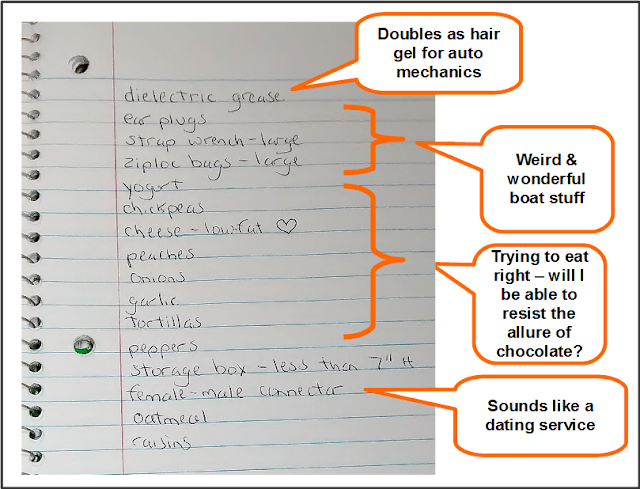 Doubles as hair
gel for auto
mechanics
dielectric grease
ear plugs
strap wrench - large
ziploc bags - large
Weird &
wonderful
boat stuff
yogurt
chickpeas
cheese - low-fat ♡
peaches
onions
garlic
tortillas
Trying to eat
right – will I
be able to
resist the
allure of
chocolate?
peppers
storage box - less than 7" H
female-male connector
Sounds like a
dating service
oatmeal
raisins